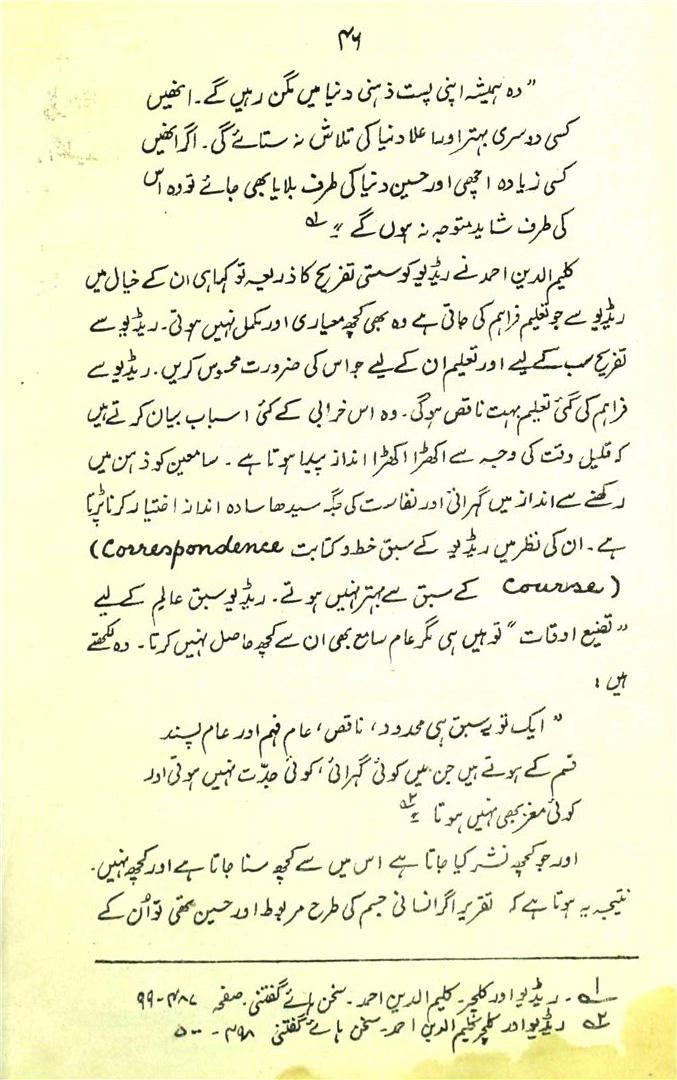 ۴۶
" وہ ہمیشہ اپنی پست ذہنی دنیا میں مگن رہیں گے۔ انھیں
کسی دوسری بہتر اور اعلا دنیا کی تلاش نہ ستائے گی۔ اگر انھیں
کسی زیادہ اچھی اور حسین دنیا کی طرف بلایا بھی جائے تو وہ اس
کی طرف شاید متوجہ نہ ہوں گے " ۱ے
کلیم الدین احمد نے ریڈیو کو سستی تفریح کا ذریعہ تو کہا ہی ان کے خیال میں
ریڈیو سے جو تعلیم فراہم کی جاتی ہے وہ بھی کچھ معیاری اور مکمل نہیں ہوتی۔ ریڈیو سے
تفریح سب کے لیے اور تعلیم ان کے لیے جو اس کی ضرورت محسوس کریں۔ ریڈیو سے
فراہم کی گئی تعلیم بہت ناقص ہوگی۔ وہ اس خرابی کے کئی اسباب بیان کرتے ہیں
کہ قلیل وقت کی وجہ سے اکھڑا اکھڑا انداز پیدا ہوتا ہے ۔ سامعین کو ذہن میں
رکھنے سے انداز میں گہرائی اور نفاست کی جگہ سیدھا سادہ انداز اختیار کرنا پڑتا
ہے۔ ان کی نظر میں ریڈیو کے سبق خط و کتابت (Correspondence
Course) کے سبق سے بہتر نہیں ہوتے۔ ریڈیو سبق عالم کے لیے
" تضیع اوقات " تو ہیں ہی مگر عام سامع بھی ان سے کچھ حاصل نہیں کرتا۔ وہ لکھتے
ہیں :
" ایک تو یہ سبق ہی محدود، ناقص، عام فہم اور عام پسند
قسم کے ہوتے ہیں جن میں کوئی گہرائی، کوئی جدّت نہیں ہوتی اور
کوئی مغز بھی نہیں ہوتا " ۲ے
اور جو کچھ نشر کیا جاتا ہے اس میں سے کچھ سنا جاتا ہے اور کچھ نہیں۔
نتیجہ یہ ہوتا ہے کہ تقریر اگر انسانی جسم کی طرح مربوط اور حسین تھی تو اُن کے
۱ے۔ ریڈیو اور کلچر۔ کلیم الدین احمد۔ سخن ہائے گفتنی۔ صفحہ ۴۸۷-۹۹
۲ے ریڈیو اور کلچر کلیم الدین احمد۔ سخن ہائے گفتنی ۴۹۸-۵۰۰